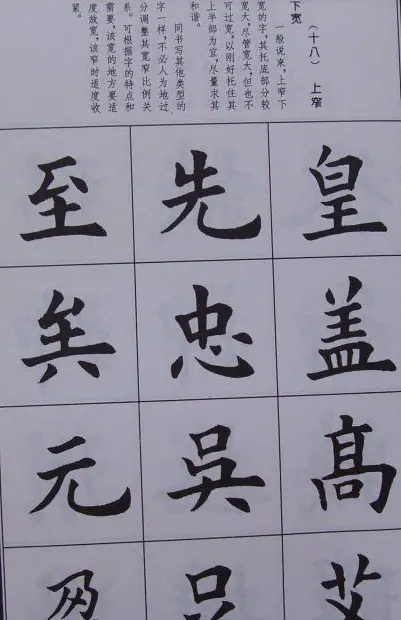 (十八) 上窄
下宽
一般说来,上窄下
宽的字,其托底部分较
宽大,尽管宽大,但也不
可过宽,以刚好托住其
上半部为宜,尽量求其
和谐。
同书写其他类型的
字一样,不必人为地过
分调整其宽窄比例关
系。可根据字的特点和
需要,该宽的地方要适
度放宽,该窄时适度收
紧。
皇盖髙艾
先忠吳
至矣元